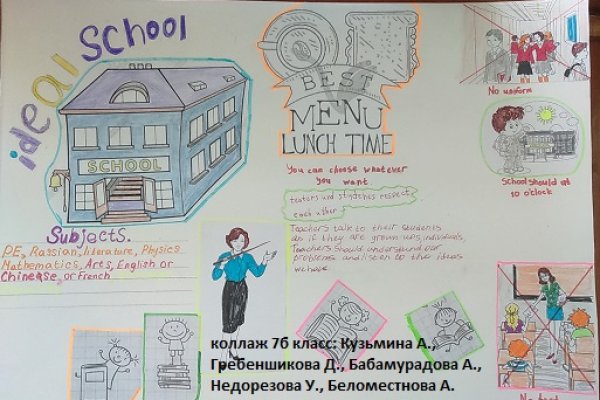 ideal School
SCHOOL
BEST
MENU
LUNCH TIME
You can choose whatever
you want.
teaturs and stydehes respect
each other
Teachers talk to their students
as if they are grown ups, individuals,
Teachers should understand our
problems and listen to the ideas
we have
No uniform
School should at
10 o'clock
Subjects.
PE, Russian, literature, Physics
Mathematics, Arts, English or
Chinease, or French
коллаж 7б класс: Кузьмина А.,
Гребеншикова Д., Бабамурадова А.,
Недорезова У., Беломестнова А.
No